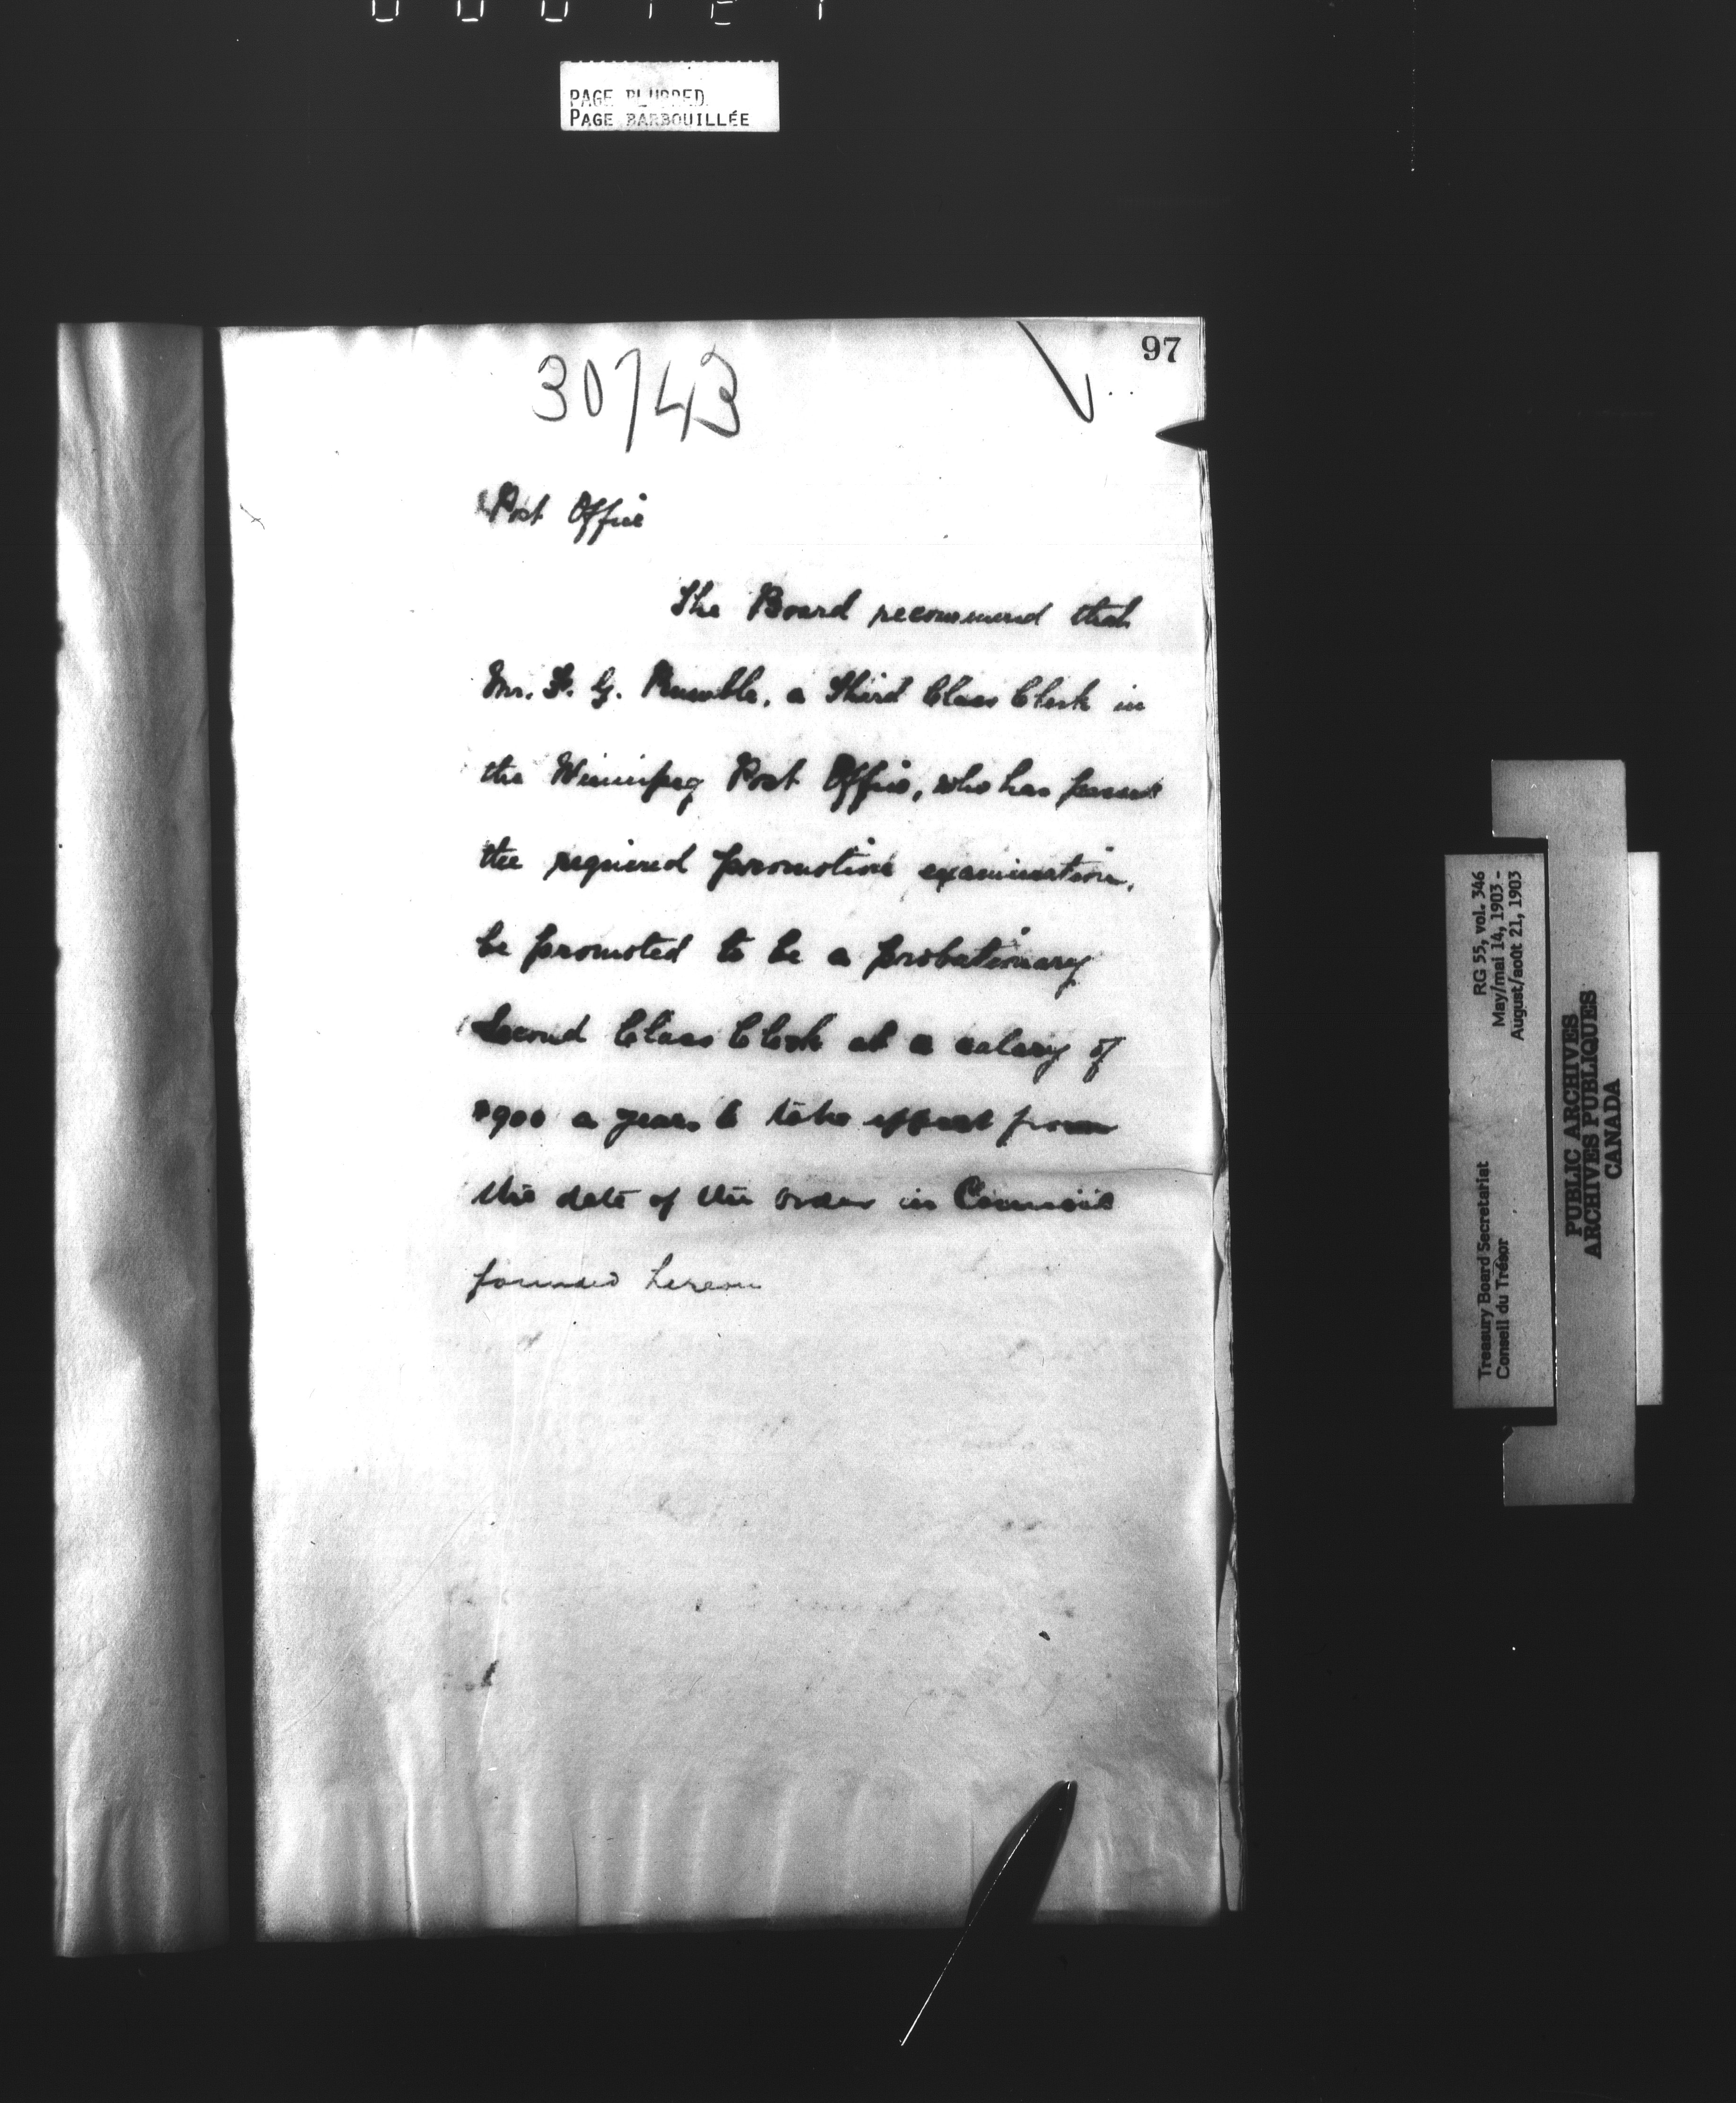 PAGE BLURRED
PAGE BARBOUILLÉE
97
30743
Post Office
The Board recommend that
Mr. F. G. Rumble, a Third Class Clerk in
the Winnipeg Post Office, who has passed
the required promotion examination,
be promoted to be a probationary
Second Class Clerk at a salary of
$900 a year to take effect from
the date of the order in Council
founded hereon
RG 55, vol. 346
May/mai 14, 1903 -
August/août 21, 1903
Treasury Board Secretariat
Conseil du Trésor
PUBLIC ARCHIVES
ARCHIVES PUBLIQUES
CANADA